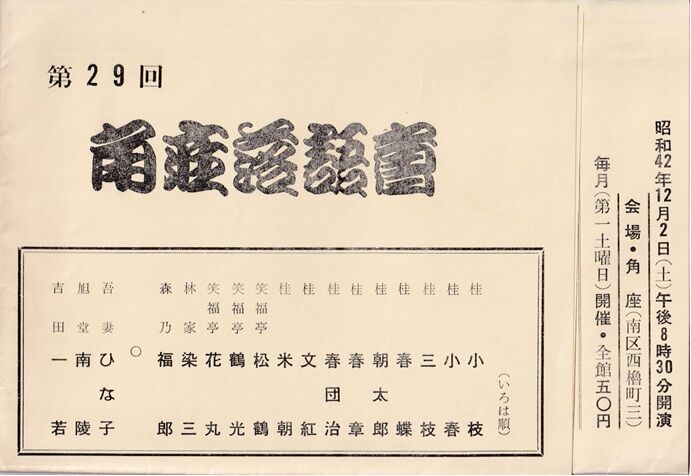 第29回
角座落語会
(いろは順)
桂 小枝
桂 小春
桂 三枝
桂 春蝶
桂 朝太郎
桂 春章
桂 春団治
桂 文紅
桂 米朝
笑福亭 松鶴
笑福亭 鶴光
笑福亭 花丸
林家 染三
森乃 福郎
○
吾妻 ひな子
旭堂 南陵
吉田 一若
昭和42年12月2日(土)午後8時30分開演
会場・角座(南区西櫓町三)
毎月(第一土曜日)開催・全館五〇円